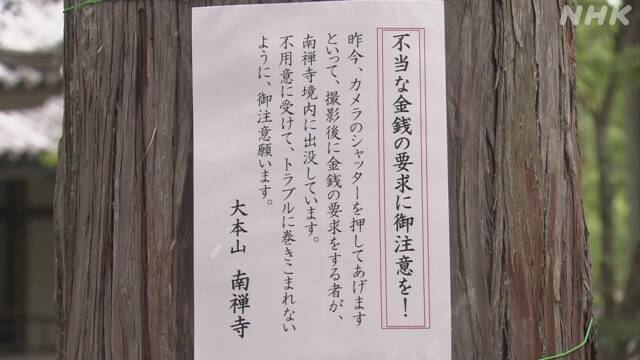 不当な金銭の要求に御注意を！
昨今、カメラのシャッターを押してあげます
といって、撮影後に金銭の要求をする者が、
南禅寺境内に出没しています。
不用意に受けて、トラブルに巻きこまれない
ように、御注意願います。
大本山 南禅寺
NHK